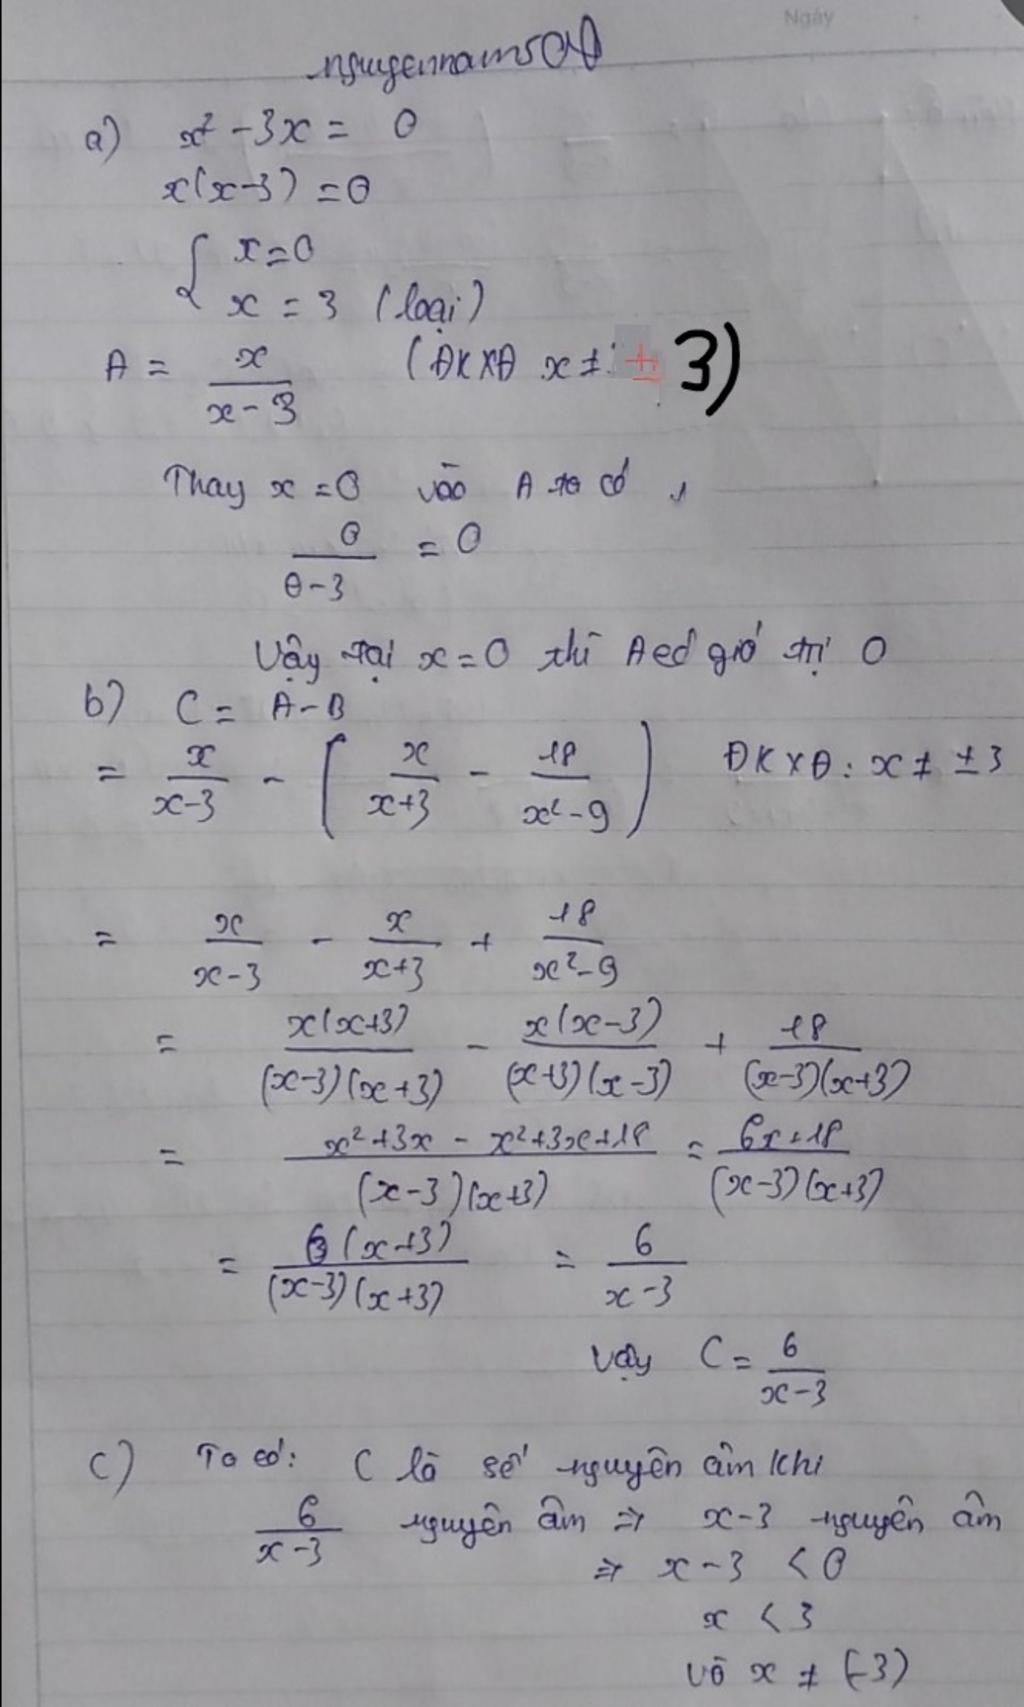 Ngày
nguyennam50
a) x² - 3x = 0
x(x-3) = 0
{ x = 0
x = 3 (loại)
A = x/(x-3) (ĐKXĐ x ≠ ± 3)
Thay x = 0 vào A ta có
0/(0-3) = 0
Vậy tại x = 0 thì A có giá trị 0
b) C = A - B
= x/(x-3) - ( x/(x+3) - 18/(x²-9) ) ĐKXĐ: x ≠ ±3
= x/(x-3) - x/(x+3) + 18/(x²-9)
= x(x+3)/(x-3)(x+3) - x(x-3)/(x+3)(x-3) + 18/(x-3)(x+3)
= (x²+3x - x²+3x+18)/(x-3)(x+3) = (6x+18)/(x-3)(x+3)
= 6(x+3)/(x-3)(x+3) = 6/(x-3)
Vậy C = 6/(x-3)
c) Ta có: C là số nguyên âm khi
6/(x-3) nguyên âm ⇒ x-3 nguyên âm
⇒ x-3 < 0
x < 3
và x ≠ (-3)